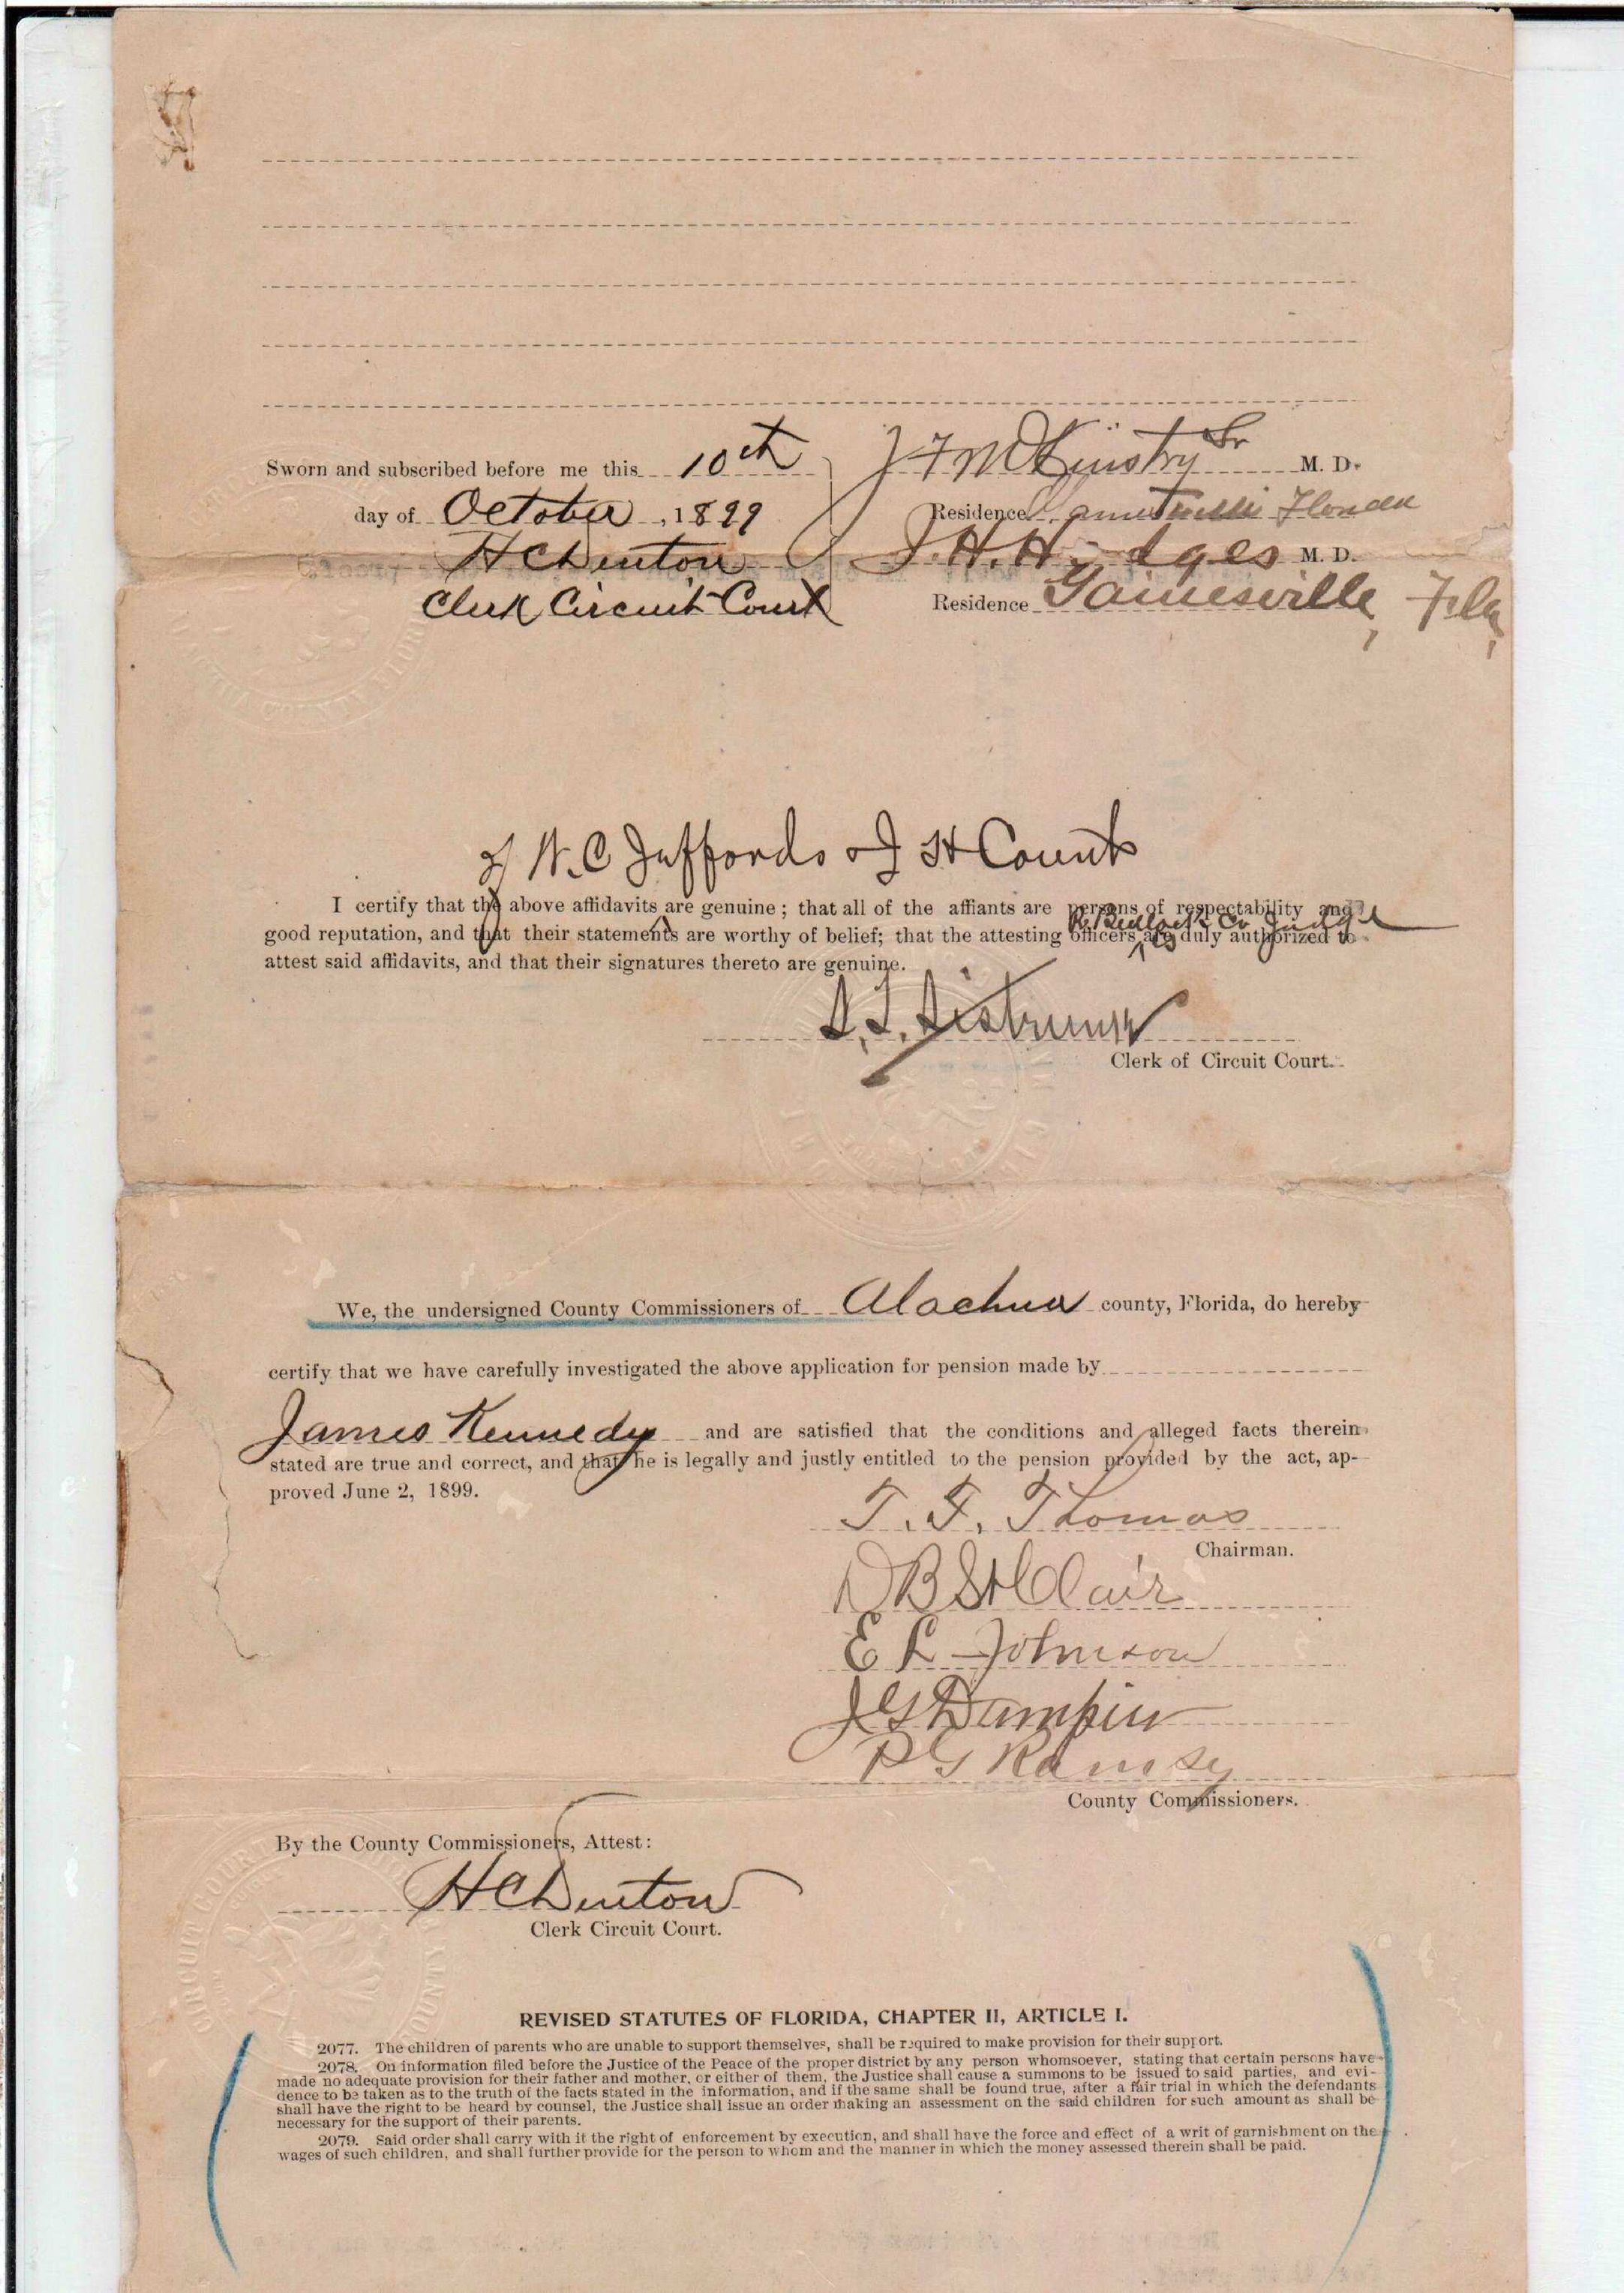 Sworn and subscribed before me this 10th
J F McKinstry Sr M. D.
day of October, 1899
Residence Gainesville Florida
H C Denton
J. H. Hodges M. D.
Clerk Circuit Court
Residence Gainesville, Fla,
of W. C Jeffords & J H Counts
I certify that the above affidavits are genuine; that all of the affiants are persons of respectability and
R. Bullock Co Judge
good reputation, and that their statements are worthy of belief; that the attesting officers are duly authorized to
is
attest said affidavits, and that their signatures thereto are genuine.
Clerk of Circuit Court.
We, the undersigned County Commissioners of Alachua county, Florida, do hereby
certify that we have carefully investigated the above application for pension made by
James Kennedy and are satisfied that the conditions and alleged facts therein
stated are true and correct, and that he is legally and justly entitled to the pension provided by the act, ap-
proved June 2, 1899.
T. F. Thomas
Chairman.
D B St Clair
E L Johnson
J G Dampier
P G Ramsey
County Commissioners.
By the County Commissioners, Attest:
H C Denton
Clerk Circuit Court.
REVISED STATUTES OF FLORIDA, CHAPTER II, ARTICLE I.
2077. The children of parents who are unable to support themselves, shall be required to make provision for their support.
2078. On information filed before the Justice of the Peace of the proper district by any person whomsoever, stating that certain persons have
made no adequate provision for their father and mother, or either of them, the Justice shall cause a summons to be issued to said parties, and evi-
dence to be taken as to the truth of the facts stated in the information, and if the same shall be found true, after a fair trial in which the defendants
shall have the right to be heard by counsel, the Justice shall issue an order making an assessment on the said children for such amount as shall be
necessary for the support of their parents.
2079. Said order shall carry with it the right of enforcement by execution, and shall have the force and effect of a writ of garnishment on the
wages of such children, and shall further provide for the person to whom and the manner in which the money assessed therein shall be paid.